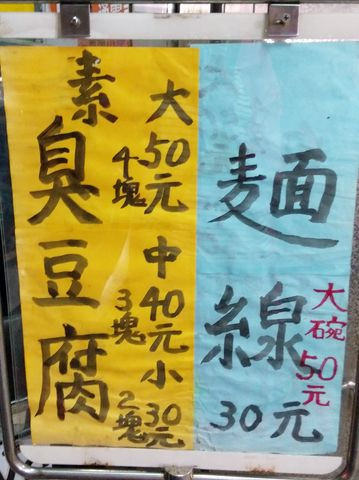 素臭豆腐
大50元
4塊
中40元
3塊
小30元
2塊
麵線
30元
大碗50元